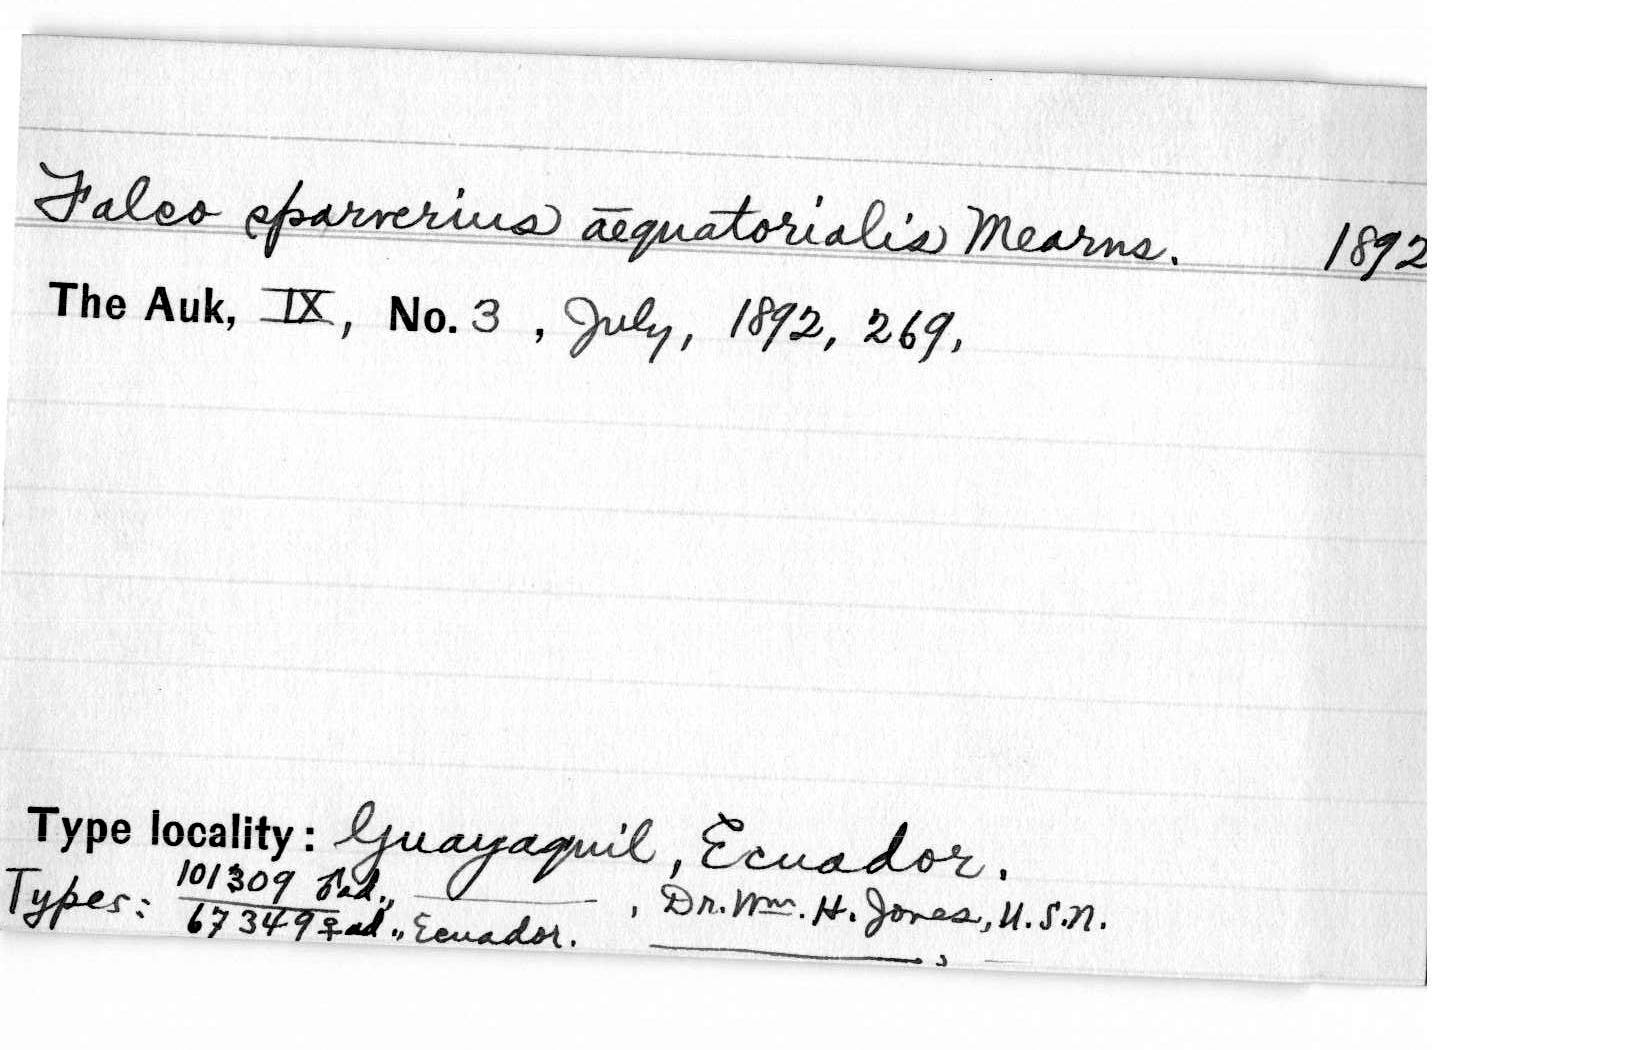 Falco sparverius aequatorialis Mearns. 1892
The Auk, IX, No. 3, July, 1892, 269,
Type locality: Guayaquil, Ecuador.
Types: 101309 ♂ ad., ———, Dr. Wm. H. Jones, U.S.N.
67349 ♀ ad., Ecuador. ———,